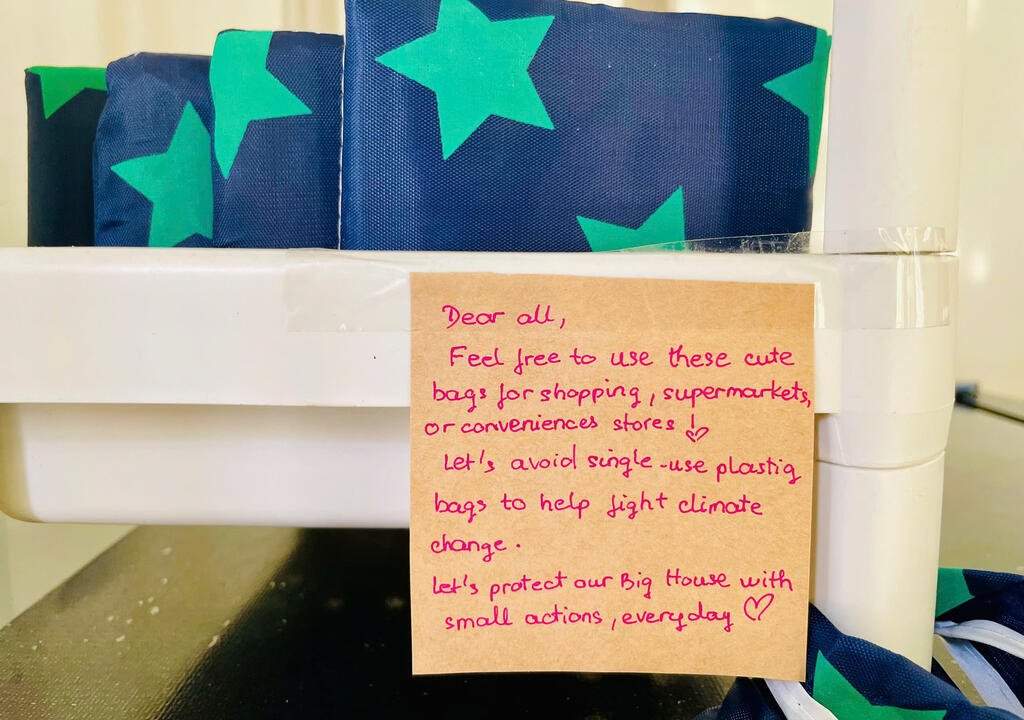 Dear all,
Feel free to use these cute
bags for shopping, supermarkets,
or conveniences stores!
Let's avoid single-use plastiq
bags to help fight climate
change.
Let's protect our Big House with
small actions, everyday ♡